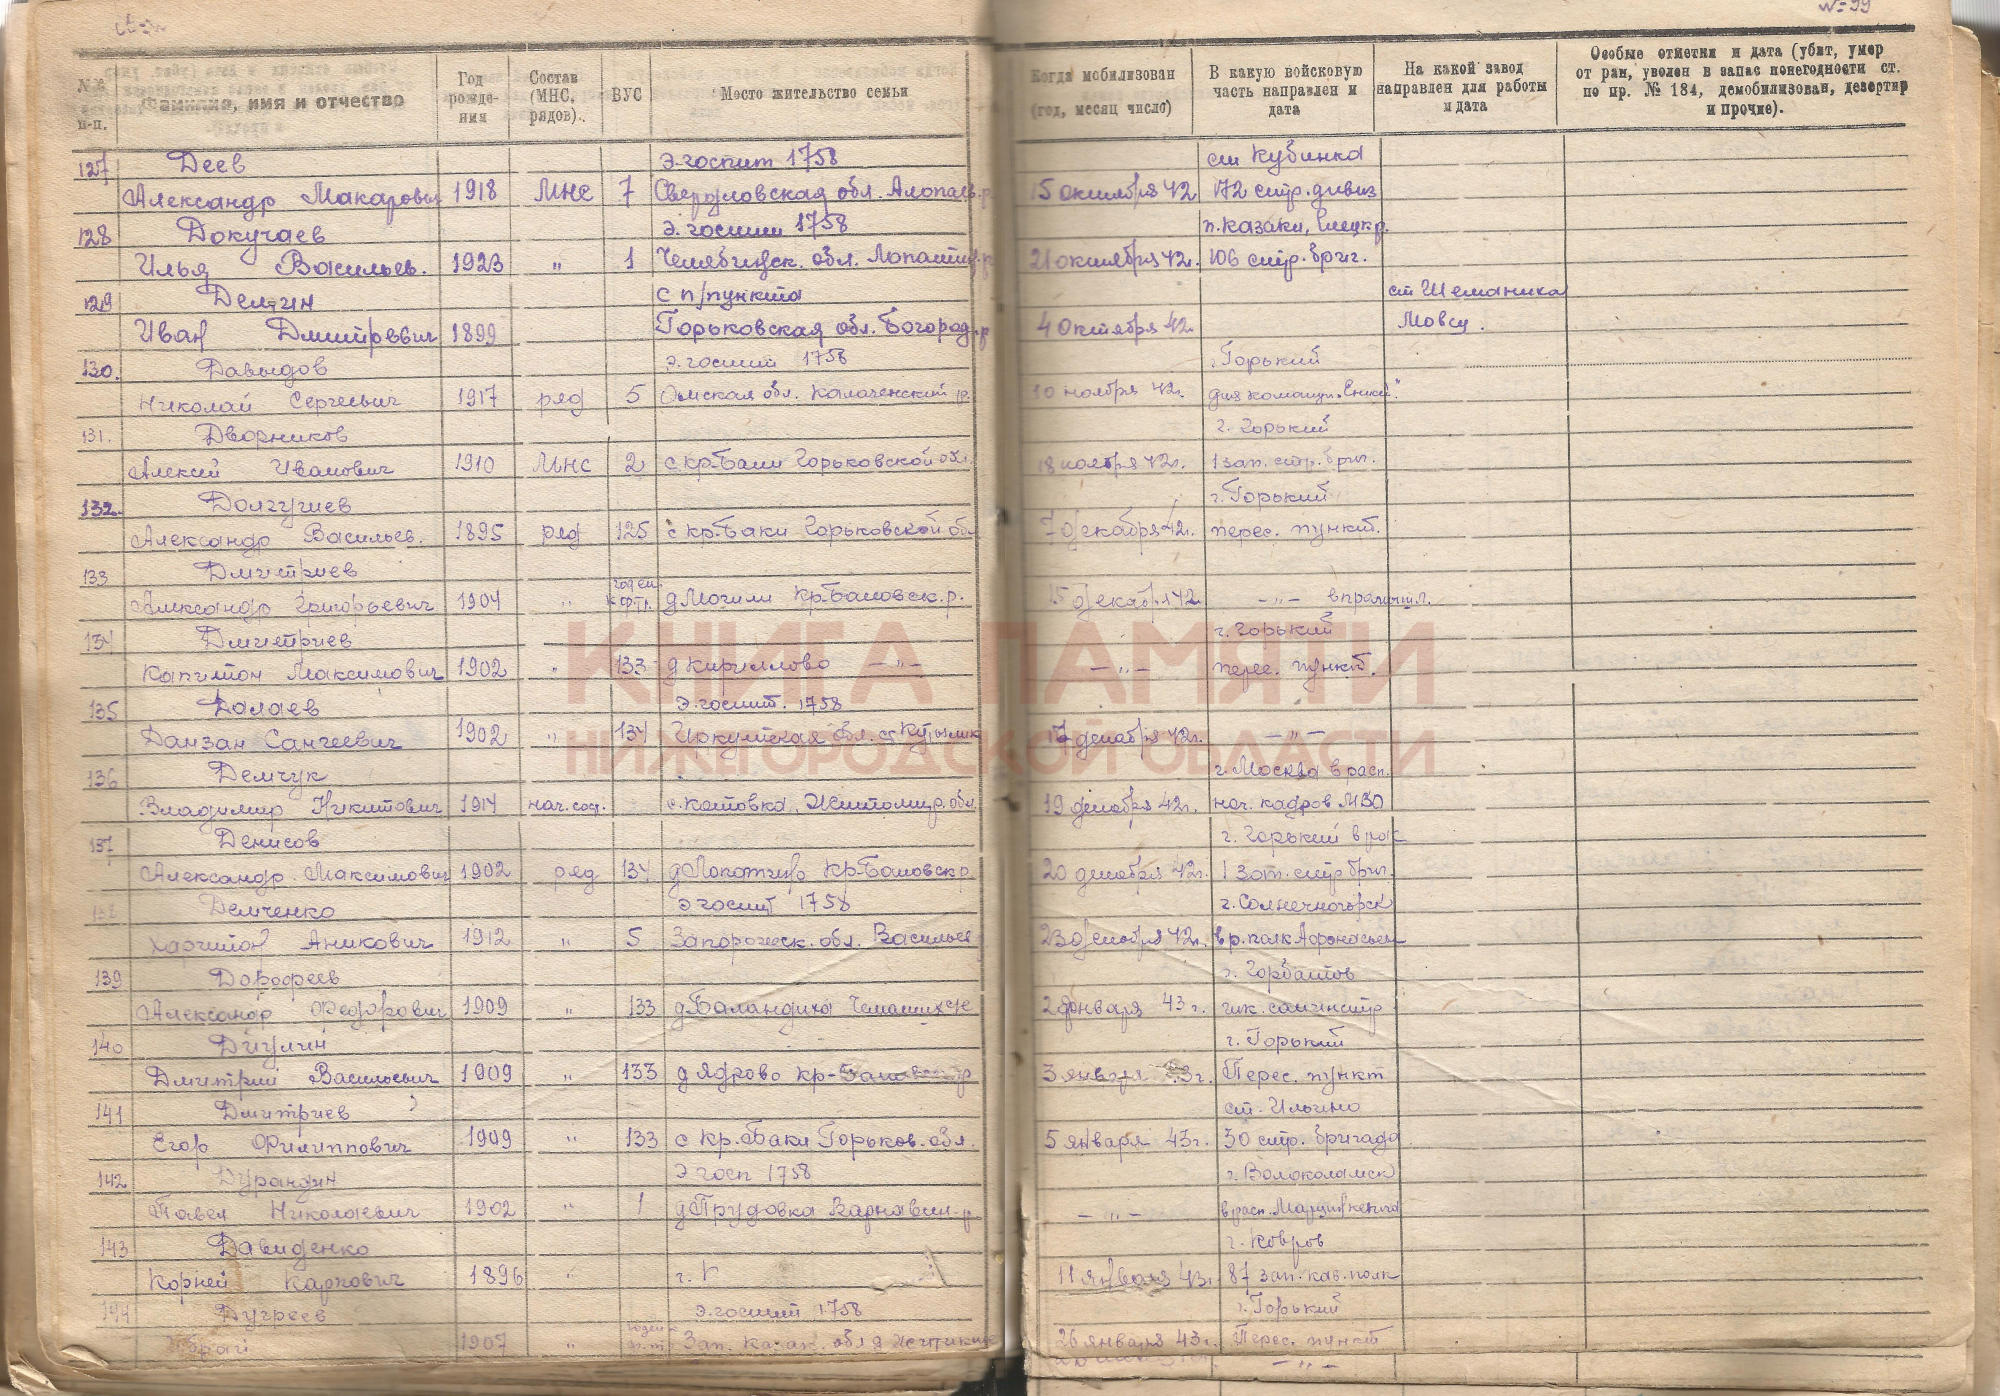 № 99
№№ п-п.
Фамилия, имя и отчество
Год рожде-ния
Состав (МНС, рядов).
ВУС
Место жительство семьи
Когда мобилизован (год, месяц число)
В какую войсковую часть направлен и дата
На какой завод направлен для работы и дата
Особые отметки и дата (убит, умер от ран, уволен в запас понегодности ст. по пр. № 184, демобилизован, дезертир и прочие).
127 Деев э.госпит 1758 ст Кубинка
Александр Макарович 1918 МНС 7 Свердловская обл. Алопаев.р. 15 октября 42 172 стр.дивиз
128 Докучаев э.госпит 1758 п.Казаки, Елецк.р.
Илья Васильев. 1923 " 1 Челябинск. обл. 21 октября 42г. 106 стр.бриг.
129 Демин с п/пункта ст Шеманиха
Иван Дмитриевич 1899 Горьковская обл. Богород.р 4 октября 42. Мовсу.
130. Давыдов э.госпит 1758 г.Горький
Николай Сергеевич 1917 ряд 5 Омская обл. Калаченский р. 10 ноября 42г. для команды
131. Дворников г. Горький
Алексей Иванович 1910 МНС 2 с кр-Баки Горьковской обл. 18 ноября 42г. 1 зап. стр. бриг.
132. Долгушев г.Горький
Александр Васильев. 1895 ряд 125 с кр-Баки Горьковской обл 7 декабря 42г. перес. пункт.
133 Дмитриев
Александр Григорьевич 1904 " годен к ф.тр. д Могили Кр-Баковск.р. 15 декабр. 42 -"- в промышл.
134 Дмитриев г. Горький
Капитон Максимович 1902 " 133 д Кириллово -"- -"- перес. пункт.
135 Далаев э.госпит. 1758
Данзан Сангеевич 1902 " 134 Иркутская обл. 17 декабря 42г. -"-
136 Демчук г.Москва в расп.
Владимир Никитович 1914 нач.сос. с.Котовка, Житомир.обл. 19 декабря 42г. нач. кадров МВО
137 Денисов г. Горький в рас
Александр Максимович 1902 ряд 134 Кр-Баковск р 20 декабря 42г. 1 зап. стр бриг.
138 Демченко э госпит 1758 г.Солнечногорск
Харитон Аникович 1912 " 5 Запорожск. обл. Васильев 23 декабря 42г. в р.полк Афонасьев
139 Дорофеев г. Горбатов
Александр Федорович 1909 " 133 д Баландиха 2 января 43 г.
140 Дигулин г. Горький
Дмитрий Васильевич 1909 " 133 д Ядрово кр-Баковск р 3 января 43г. Перес. пункт
141 Дмитриев ст. Ильино
Егор Филиппович 1909 " 133 с Кр.Баки Горьков.обл. 5 января 43г. 30 стр. бригада
142 Дурандин э госп 1758 г.Волоколамск
Павел Николаевич 1902 " 1 д Трудовка Варнавин.р. -"- в расп.
143 Давиденко г. Ковров
Корней Карпович 1896 " г. 11 января 43г. 87 зап. кав. полк
144 Дугреев э.госпит 1758 г.Горький
1907 " годен ф.т. Зап. Казах. обл д 26 января 43г. Перес. пункт
-"-
КНИГА ПАМЯТИ
НИЖЕГОРОДСКОЙ ОБЛАСТИ